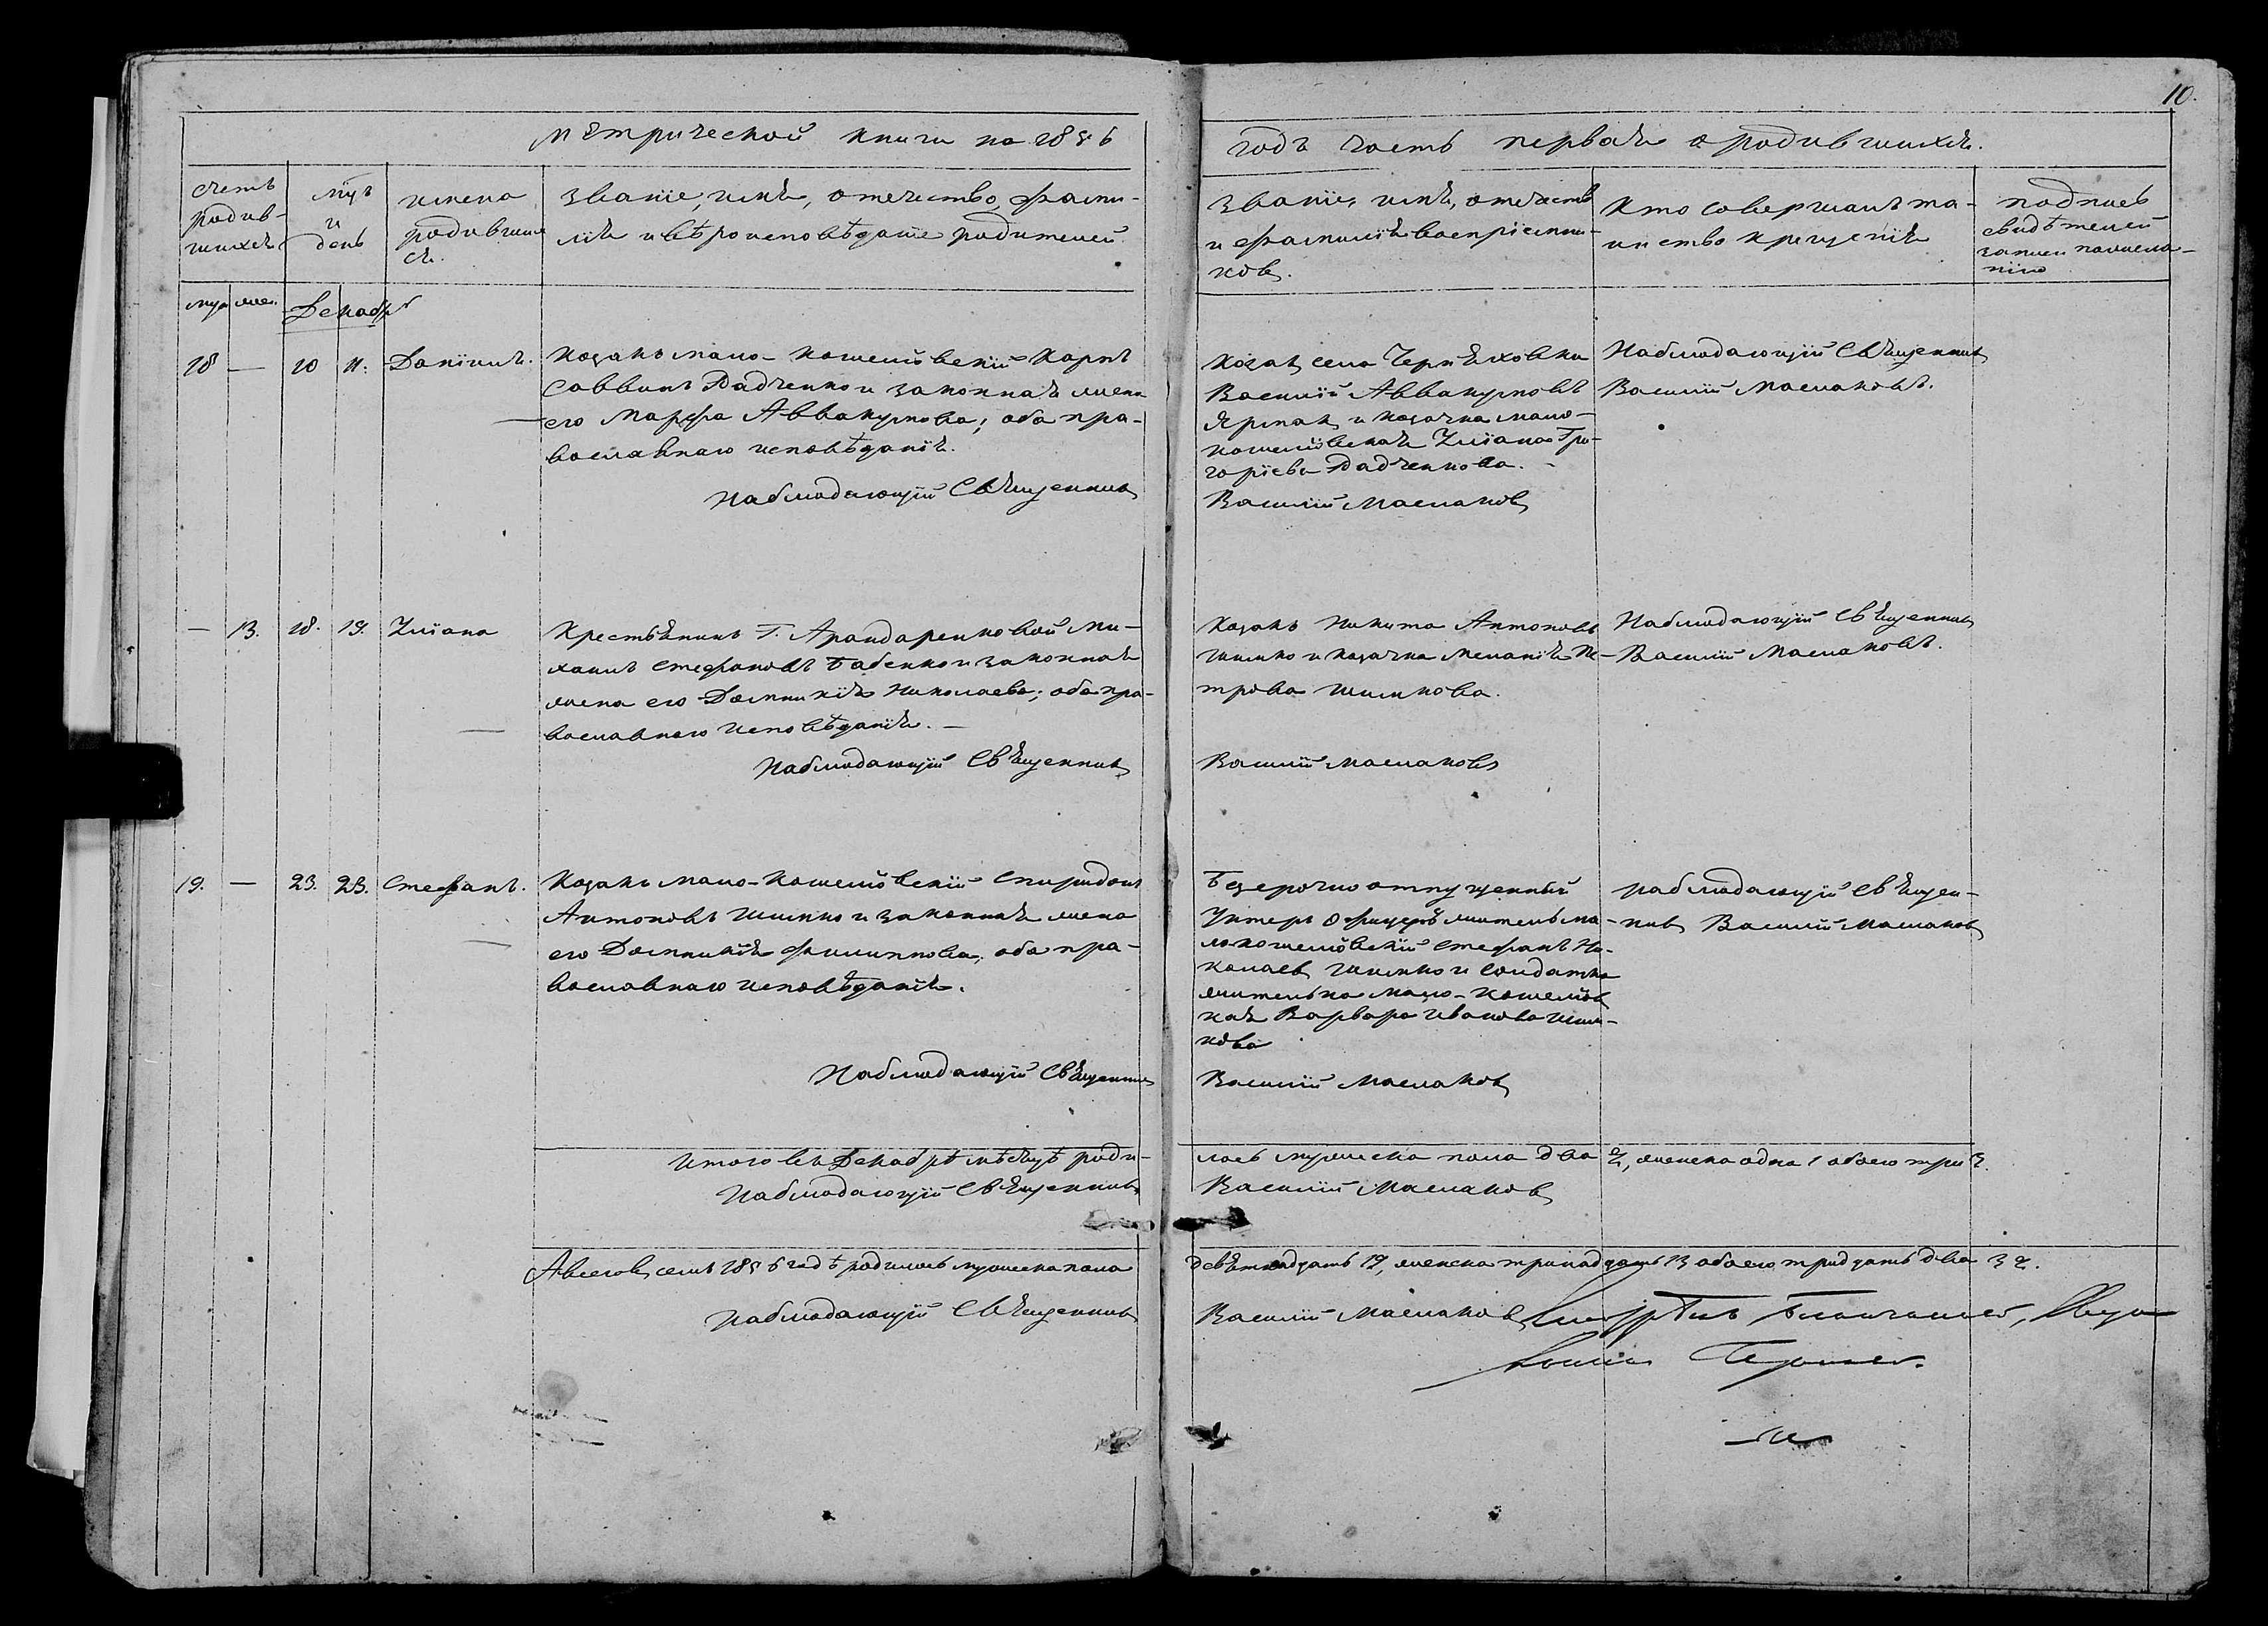 10.
метрической книги на 1856
годъ часть первая о родившихся.
счетъ
родив-
шихся
мцъ
и
день
имена
родивших
ся.
званіе, имя, отечество, фами-
лія и вѣроисповѣданіе родителей.
званіе, имя, отечество
и фамилія воспріемни-
ковъ.
кто совершалъ та-
инство крещенія
подпись
свидѣтелей
записи по желa-
нію
муж жен.
Декабрь
18 — 10 11. Даніилъ.
Козакъ мало-кошелёвскій Карпъ
Саввинъ Дадченко и законная жена
его Марфа Аввакумова; оба пра-
вославнаго исповѣданія.
Наблюдающій Священникъ
Козакъ села Черняховки
Василій Аввакумовъ
Ярмак и козачка мало-
кошелёвская Уліана Гри-
горіева Дадченкова.
Василій Маслаковъ
Наблюдающій Священникъ
Василій Маслаковъ.
— 13. 18. 19. Уліана
Крестьянинъ Г. Арандаренковой Ми-
хаилъ Стефановъ Бабенко и законная
жена его Домникія Николаева; оба пра-
вославнаго исповѣданія. —
Наблюдающій Священникъ
Козакъ Никита Антоновъ
Шимко и козачка Меланія Пе-
трова Шимкова.
Василій Маслаковъ
Наблюдающій Священникъ
Василій Маслаковъ.
19. — 23. 23. Стефанъ.
Козакъ мало-Кошелёвскій Спиридонъ
Антоновъ Шимко и законная жена
его Домникія Филиппова, оба пра-
вославнаго исповѣданія.
Наблюдающій Священникъ
Безсрочно отпущенный
Унтеръ Офицеръ житель ма-
локошелёвскій Стефанъ Ни-
колаевъ Шимко и солдатка
жителька мало-кошелёвс
кая Варвара Иванова Шим-
кова
Василій Маслаковъ
Наблюдающій Священ-
никъ Василій Маслаковъ
Итого въ Декабрѣ мѣсяцѣ роди-
лось мужеска пола два 2, женска одна 1 обоего три 3.
Наблюдающій Священникъ
Василій Маслаковъ
А всего въ семъ 1856 годѣ родилось мужеска пола
девятнадцать 19, женска тринадцать 13 обоего тридцать два 32.
Наблюдающій Священникъ
Василій Маслаковъ